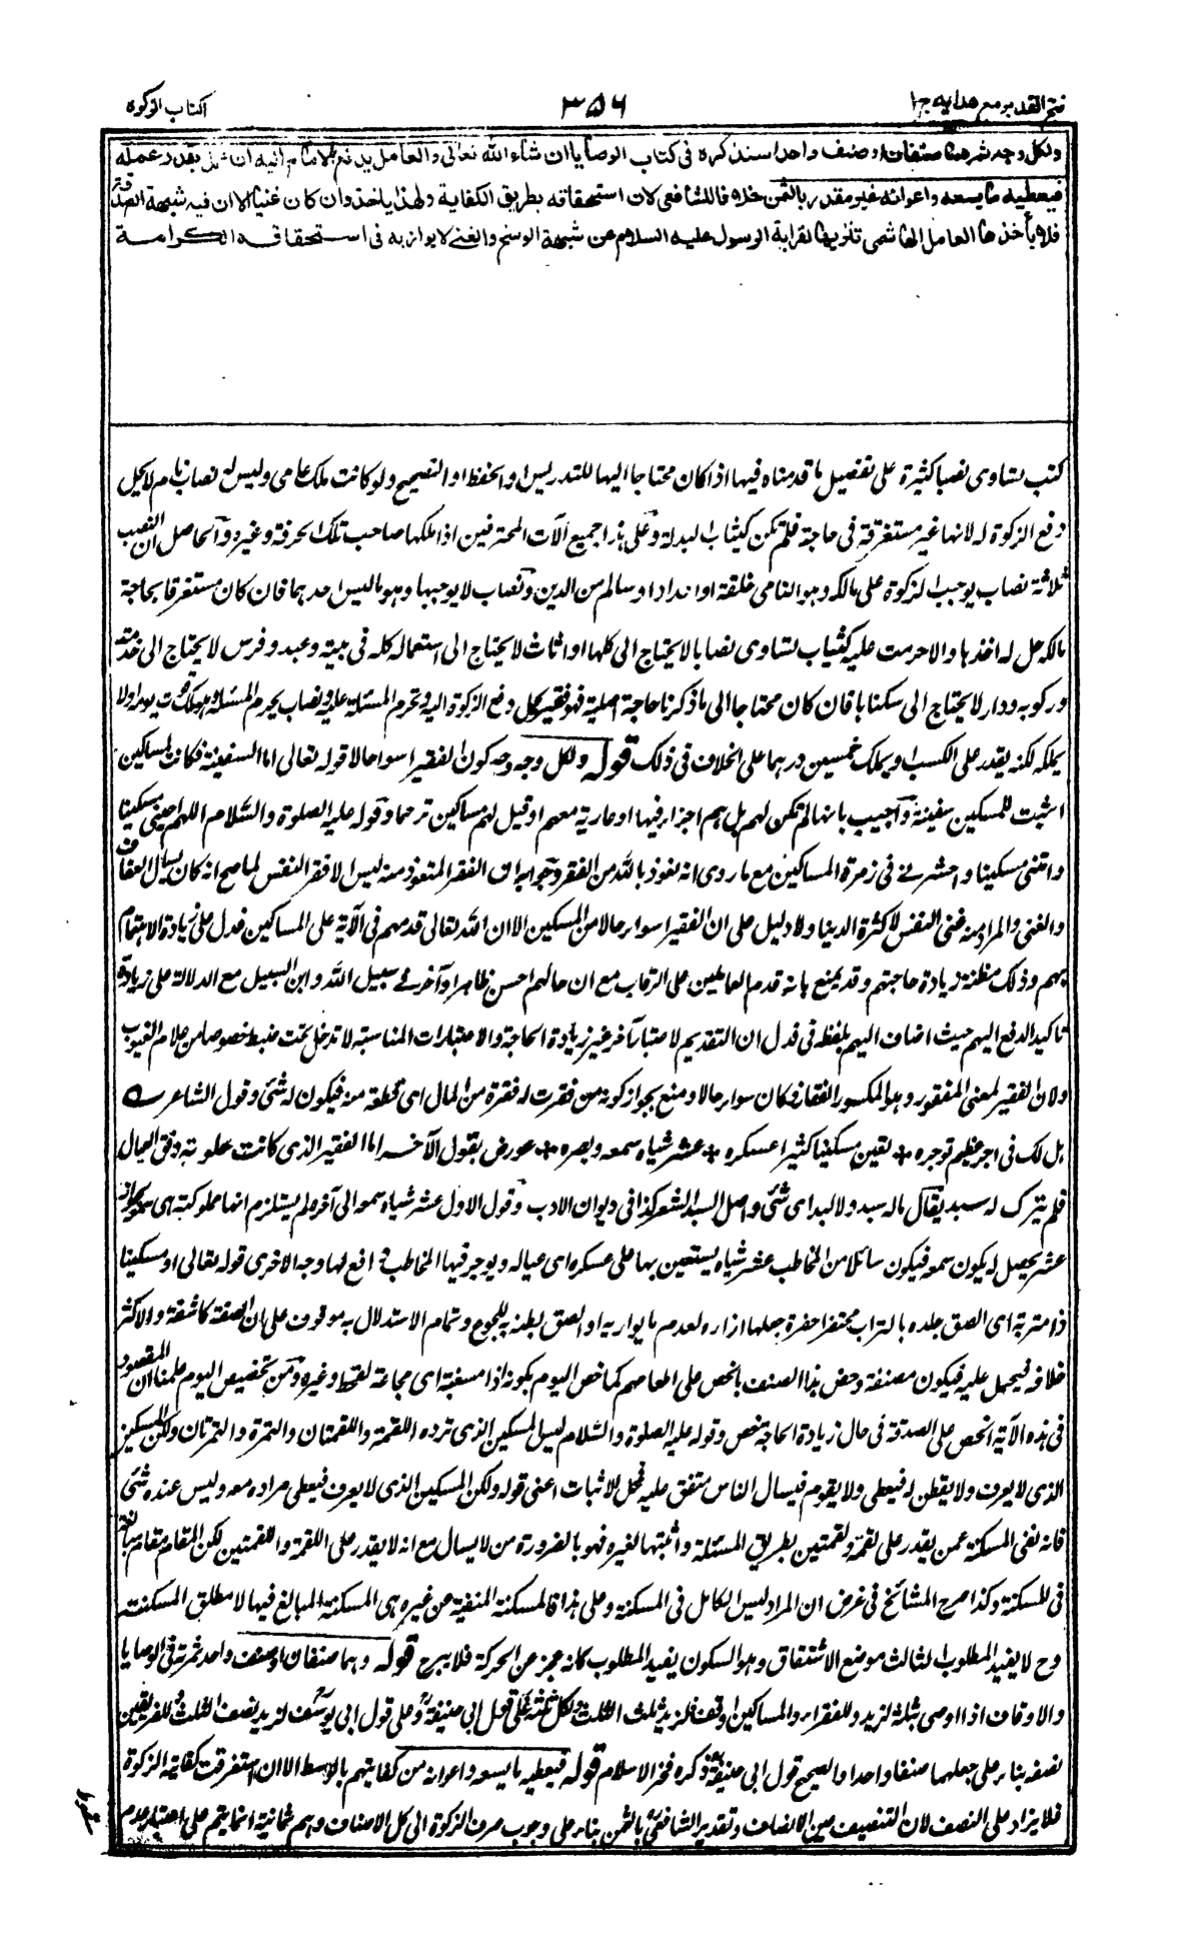 فتح القدیر مع هدایه ج۱ ۳۵۶ کتاب الزکوة
ولکل وجه ثم هما صنفان او صنف واحد سنذکره فی کتاب الوصایا ان شاء الله تعالی والعامل یدفع الامام الیه ان عمل بقدر عمله
فیعطیه ما یسعه واعوانه غیر مقدر بالثمن خلافا للشافعی لان استحقاقه بطریق الکفایة ولهذا یاخذ وان کان غنیا الا ان فیه شبهة الصدقة
فلا یأخذها العامل الهاشمی تنزیها لقرابة الرسول علیه السلام عن شبهة الوسخ والغنی لا یوازیه فی استحقاق الکرامة
کتب تساوی نصبا کثیرة علی تفصیل ما قدمناه فیها اذا کان محتاجا الیها للتدریس او الحفظ او التصحیح ولو کانت ملک عامی ولیس له نصاب نام لا یحل
دفع الزکوة له لانها غیر مستغرقة فی حاجة فلم تکن کثیاب البدلة وعلی هذا جمیع آلات المحترفین اذا ملکها صاحب تلک الحرفة وغیره والحاصل ان النصب
ثلاثة نصاب یوجب الزکوة علی مالکه وهو النامی خلقة او اعدادا وسالم من الدین ونصاب لا یوجبها وهو ما لیس احدهما فان کان مستغرقا بحاجة
مالکه حل له اخذها والا حرمت علیه کثیاب تساوی نصابا لا یحتاج الی کلها او اثاث لا یحتاج الی استعماله کله فی بیته وعبد وفرس لا یحتاج الی خدمته
ورکوبه ودار لا یحتاج الی سکناها فان کان محتاجا الی ما ذکرنا حاجة اصلیة فهو فقیر یحل دفع الزکوة الیه وتحرم المسئلة علیه ونصاب یحرم المسئلة وهو ملک قوت یومه او لا
یملکه لکنه یقدر علی الکسب او یملک خمسین درهما علی الخلاف فی ذلک قوله ولکل وجه وجه کون الفقیر اسوأ حالا قوله تعالی اما السفینة فکانت لمساکین
اثبت للمسکین سفینة واجیب بانها لم تکن لهم بل هم اجراء فیها او عاریة معهم او قیل لهم مساکین ترحما وقوله علیه الصلوة والسلام اللهم احینی مسکینا
وامتنی مسکینا واحشرنی فی زمرة المساکین مع ما روی انه تعوذ بالله من الفقر وجوابه ان الفقر المتعوذ منه لیس الا فقر النفس لما صح انه کان یسأل العفاف
والغنی والمراد منه غنی النفس لا کثرة الدنیا ولا دلیل علی ان الفقیر اسوأ حالا من المسکین الا ان الله تعالی قدمهم فی الآیة علی المساکین فدل علی زیادة الاهتمام
بهم وذلک مظنة زیادة حاجتهم وقد یمنع بانه قدم العاملین علی الرقاب مع ان حالهم احسن ظاهرا وآخر فی سبیل الله وابن السبیل مع الدلالة علی زیادة
تاکید الدفع الیهم حیث اضاف الیهم بلفظة فی فدل ان التقدیم لاعتبار آخر غیر زیادة الحاجة والاعتبارات المناسبة لا تدخل تحت ضبط خصوصا من علام الغیوب
ولان الفقیر لمعنی المفقور وهو المکسور الفقار فکان اسوأ حالا ومنع بجواز کونه من فقرت له فقرة من المال ای قطعة منه فیکون له شئ وقول الشاعر
هل لک فی اجر عظیم توجره ٭ تعین مسکینا کثیرا عسکره ٭ عشر شیاه سمعه وبصره ٭ عورض بقول الآخر اما الفقیر الذی کانت حلوبته وفق العیال
فلم یترک له سبد یقال ما له سبد ولا لبد ای شئ واصل السبد الشعر کذا فی دیوان الادب وقول الاول عشر شیاه سمعه الی آخره لم یستلزم انها مملوکته هی
عشر یحصل له یکون سمعه فیکون سائلا من المخاطب عشر شیاه یستعین بها علی عسکره ای عیاله ویوجر فیها المخاطب وجه الاخری قوله تعالی او مسکینا
ذا متربة ای الصق جلده بالتراب محتفرا حفرة جعلها ازاره لعدم ما یواریه او الصق بطنه به للجوع وتمام الاستدلال به موقوف علی ان الصفة کاشفة والاکثر
خلافه فیحمل علیه فیکون صفة وخص هذا الصنف بالحض علی اطعامهم کما خص الیوم بکونه ذا مسغبة ای مجاعة لقحط وغیره ومن تخصیص الیوم علمنا ان المقصود
فی هذه الآیة الحض علی الصدقة فی حال زیادة الحاجة وقوله علیه الصلوة والسلام لیس المسکین الذی ترده اللقمة واللقمتان والتمرة والتمرتان ولکن المسکین
الذی لا یعرف ولا یفطن له فیعطی ولا یقوم فیسأل الناس متفق علیه فمحل الاثبات اعنی قوله ولکن المسکین الذی لا یعرف فیعطی مراده معه ولیس عنده شئ
فانه نفی المسکنة عمن یقدر علی لقمة ولقمتین بطریق المسئلة واثبتها لغیره فهو بالضرورة من لا یسأل مع انه لا یقدر علی اللقمة واللقمتین لکن المقام مقام مبالغة
فی المسکنة وکذا صرح المشائخ فی غرض ان المراد لیس الکامل فی المسکنة وعلی هذا فالمسکنة المنفیة عن غیره هی المسکنة المبالغ فیها لا مطلق المسکنة
وح لا یفید المطلوب الثالث موضع الاشتقاق وهو السکون یفید المطلوب کانه عجز عن الحرکة فلا یبرح قوله وهما صنفان او صنف واحد ثمرته فی الوصایا
والاوقاف اذا اوصی بثلثه لزید وللفقراء والمساکین او وقف فلزید ثلث الثلث ولکل ثلثه علی قول ابی حنیفة وعلی قول ابی یوسف لزید نصف الثلث وللفریقین
نصفه بناء علی جعلهما صنفا واحدا والصحیح قول ابی حنیفة ذکره فخر الاسلام قوله فیعطیه ما یسعه واعوانه من کفایتهم بالوسط الا ان استغرقت کفایته الزکوة
فلا یزاد علی النصف لان التنصیف عین الانصاف وتقدیر الشافعی بالثمن بناء علی وجوب صرف الزکوة الی کل الاصناف وهم ثمانیة انما یتم علی اعتبار عدم